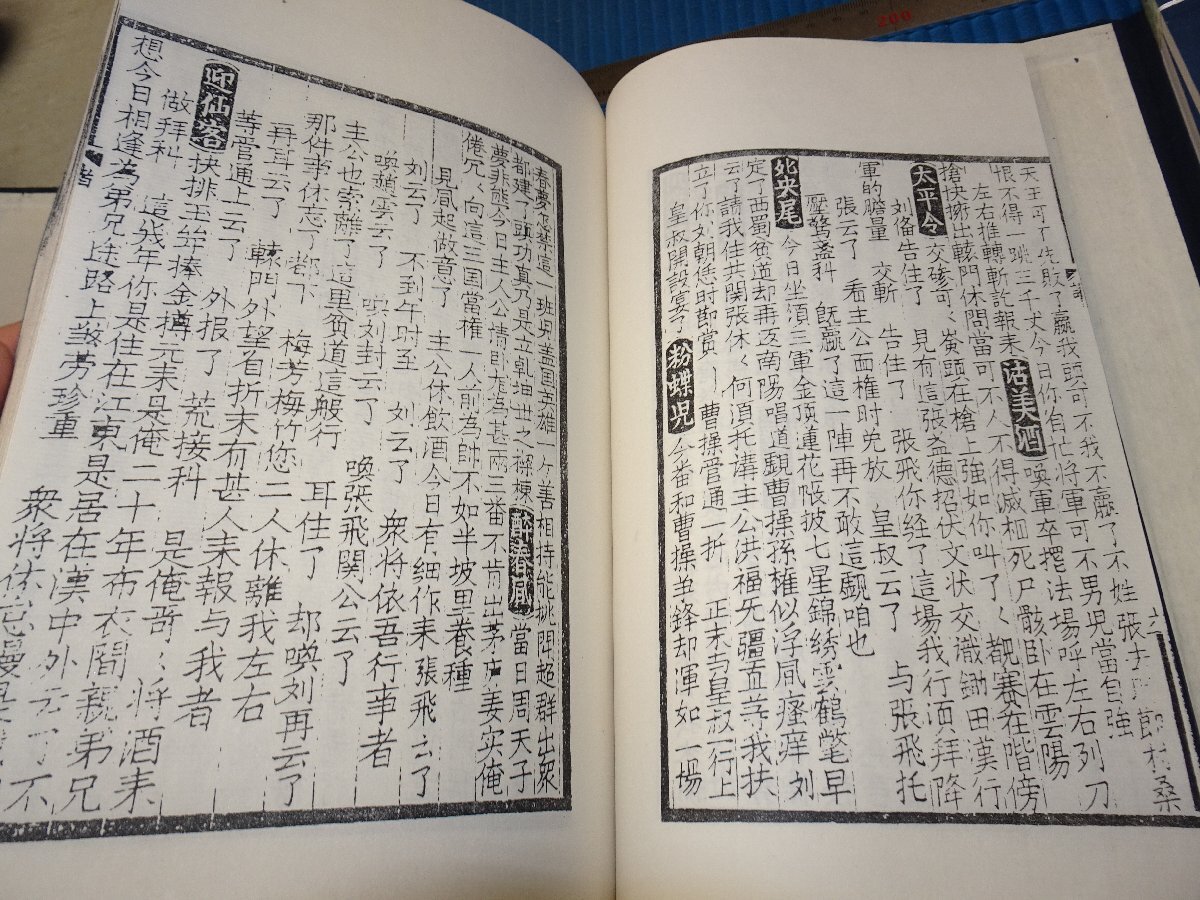 天王可了佐敗了贏我頭可不我不贏了不姓張
恨不得一跳三千丈今日你自忙将軍可不男児當自強
左右推轉斬訖報来 沽美酒 喚軍卒擺法場呼左右列刀
搶快擁出轅門休問當可不人不得滅相死尸骸卧在雲陽
太平令 交磣可〱嵓頭在槍上強如你叫了〱覷賽在階傍
刘備告住了 見有這張益德招伏文状交識鋤田漢行
軍的膽量 交斬 告住了 張飛你經了這場我行湏拜降
張云了 看主公面權时免放 皇叔云了 与張飛托
壓驚盞科 既贏了這一陣再不敢這覷咱也
夗央尾 今日坐湏三軍金頂蓮花帳披七星錦綉雲鶴氅早
定了西蜀貧道却再返南陽唱道覷曹操孫權似浮凮癢痒刘
云了請我佳共関張休〱何湏托講主公洪福旡疆直等我扶
立了你刘朝恁时勘賞 曹操管通一折 正末与皇叔一行上
皇叔開設宴了 粉蝶児 今番和曹操並鋒却渾如一場
春夢 這一班児盖国英雄一个〱善相持能挑閗超群出衆
都建了頭功真乃是立乹坤世之樑棟 醉春凮 當日周天子
夢非熊今日主人公請卧龙為甚兩三番不肯出茅庐姜实俺
倦冗〱向這三国當權一人前為帥不如半坡里養種
見净起做音了 主公休飲酒今日有細作来張飛云了
刘云了 不到午时至 刘云了 衆将依吾行事者
喚趙雲云了 喚刘封云了 喚張飛関公云了
主公也索離了這里貧道這般行 耳住了 却喚刘再云了
那件事休忘了都下 梅芳梅竹您二人休離我左右
再耳云了 轅門外望者折末有甚人来報与我者
等管通上云了 外报了 荒接科 是俺哥〱将酒来
迎仙客 快排玉斝捧金樽元来是俺二十年布衣間親弟兄
做拜科 這幾年你是住在江東是居在漢中外云了不
想今日相逢為弟兄途路上煞劳珍重 衆将休怠慢